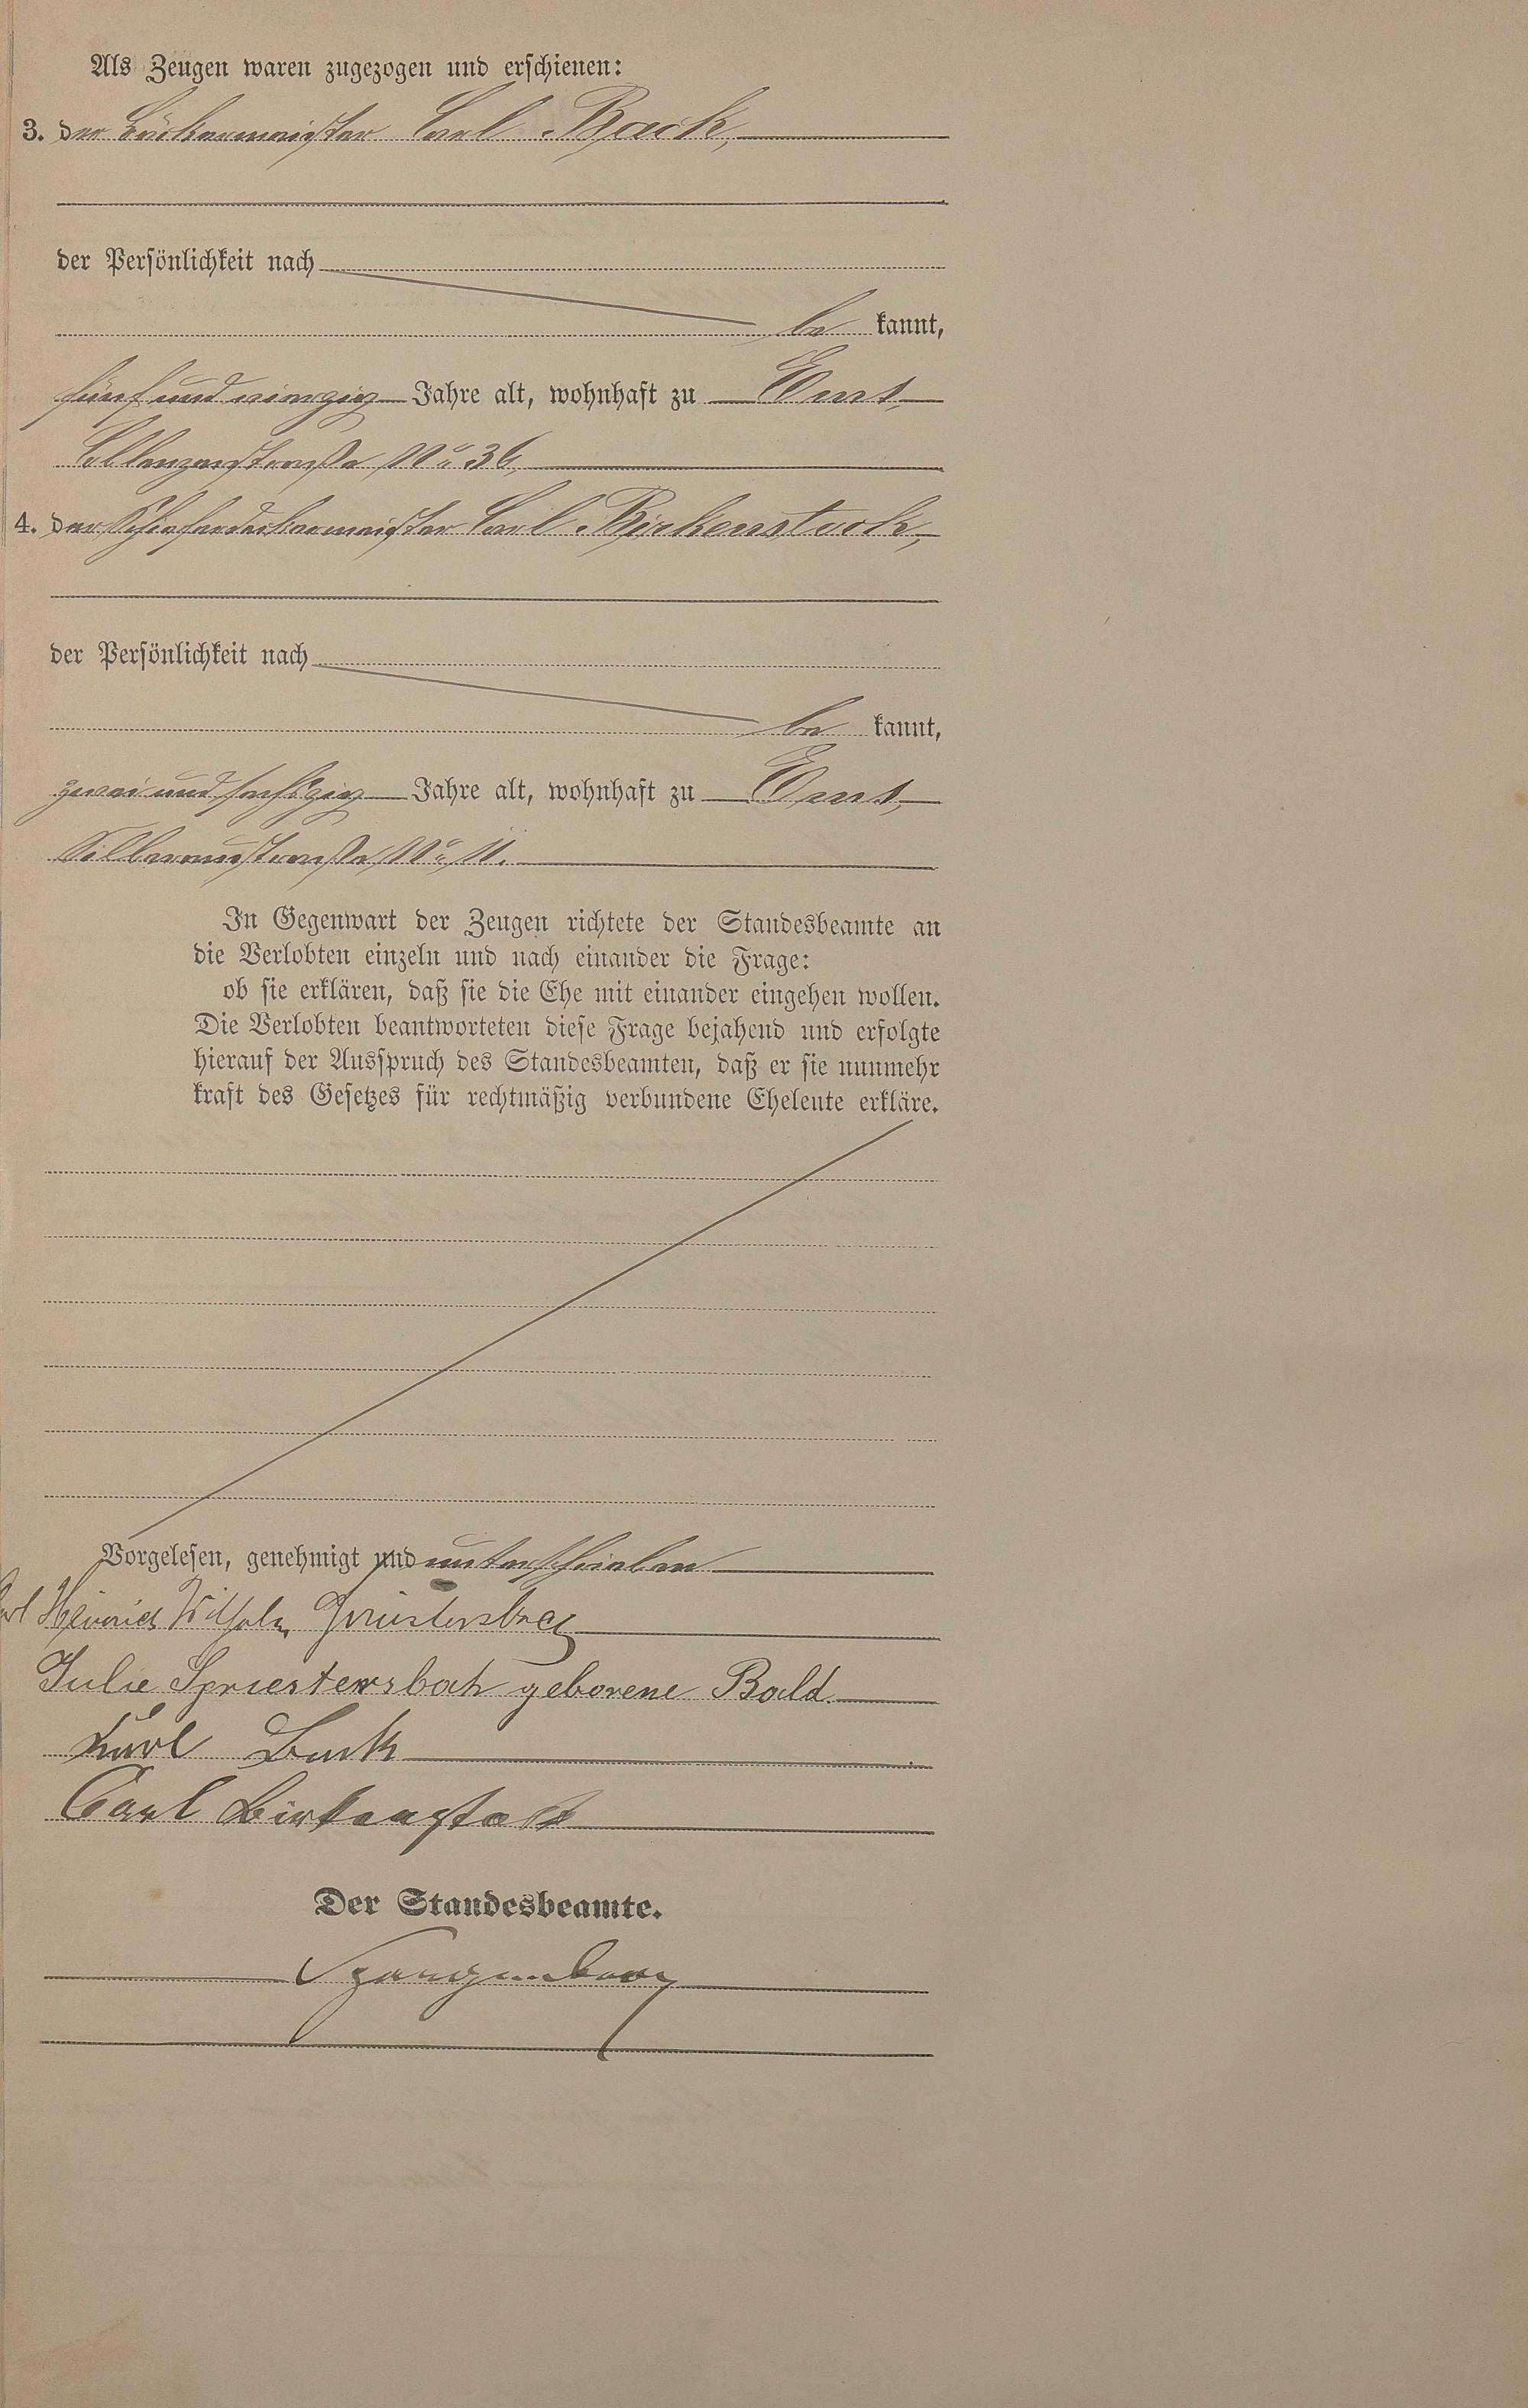 Als Zeugen waren zugezogen und erschienen:
3. der Bäckermeister Carl Back,
der Persönlichkeit nach
be kannt,
fünf und vierzig Jahre alt, wohnhaft zu Ems,
No 36,
4. der Schieferdeckermeister Carl Birkenstock,
der Persönlichkeit nach
be kannt,
zwei und sechszig Jahre alt, wohnhaft zu Ems,
Silberaustraße No 11.
In Gegenwart der Zeugen richtete der Standesbeamte an
die Verlobten einzeln und nach einander die Frage:
ob sie erklären, daß sie die Ehe mit einander eingehen wollen.
Die Verlobten beantworteten diese Frage bejahend und erfolgte
hierauf der Ausspruch des Standesbeamten, daß er sie nunmehr
kraft des Gesetzes für rechtmäßig verbundene Eheleute erkläre.
Vorgelesen, genehmigt und unterschrieben
Heinrich Wilhelm Spriestersbach
Julie Spriestersbach geborene Bald.
Karl Back
Carl Birkenstock
Der Standesbeamte.
Spangenberg